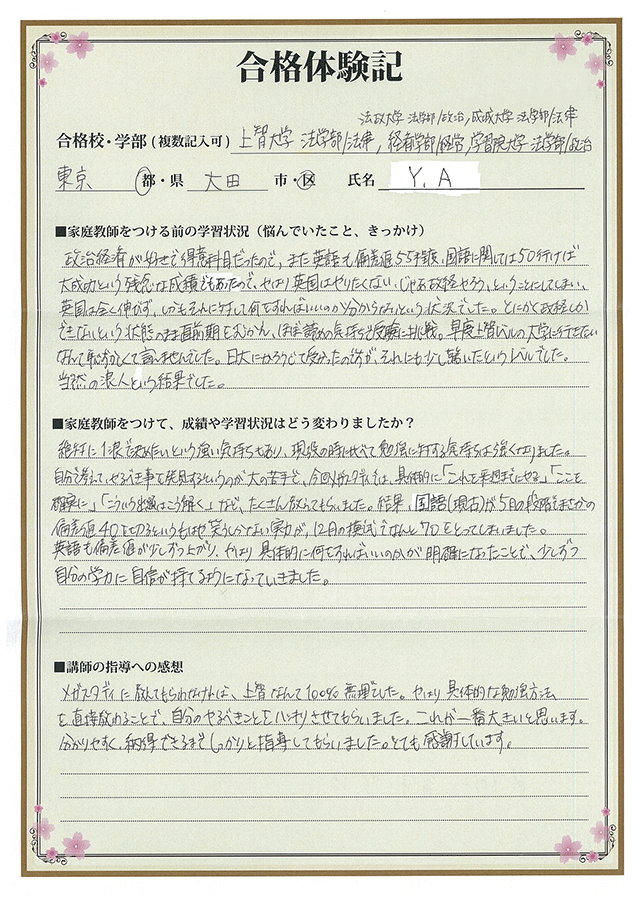 合格体験記
法政大学 法学部/政治, 成城大学 法学部/法律
合格校・学部(複数記入可) 上智大学 法学部/法律, 経済学部/経営, 学習院大学 法学部/政治
東京 都・県 大田 市・区 氏名 Y.A
■家庭教師をつける前の学習状況（悩んでいたこと、きっかけ）
政治経済が好きで得意科目だったので、また英語も偏差値55程度、国語に関しては50行けば
大成功という残念な成績でもあったので、やはり英国はやりたくない、じゃあ政経やろう、ということにしてしまい、
英国は全く伸びず、しかもそれに対して何をすればいいのか分からないという状況でした。とにかく政経しか
できないという状態のまま直前期をむかえ、ほぼ諦めの気持ちで受験に挑戦。早慶上智レベルの大学に行きたい
なんて恥ずかしくて言えませんでした。日大にかろうじて受かったのですが、それにも少し驚いたというレベルでした。
当然の浪人という結果でした。
■家庭教師をつけて、成績や学習状況はどう変わりましたか？
絶対に1浪で決めたいという強い気持ちもあり、現役の時に比べて勉強に対する気持ちは強くなりました。
自分で考えて、やるべき事を発見するというのが大の苦手で、今回メガスタディでは、具体的に「これを来週までにやる」「ここを
確実に」「こういう出題はこう解く」など、たくさん教えてもらいました。結果、国語(現古)が5月の段階でまさかの
偏差値40を切るというもはや笑うしかない実力が、12月の模試でなんと70をとってしまいました。
英語も偏差値が少しずつ上がり、やはり具体的に何をすればいいのかが明確になったことで、少しずつ
自分の学力に自信が持てるようになっていきました。
■講師の指導への感想
メガスタディに教えてもらわなければ、上智なんて100%無理でした。やはり具体的な勉強方法
を直接教わることで、自分のやるべきことをハッキリさせてもらいました。これが一番大きいと思います。
分かりやすく、納得できるまでしっかりと指導してもらいました。とても感謝しています。